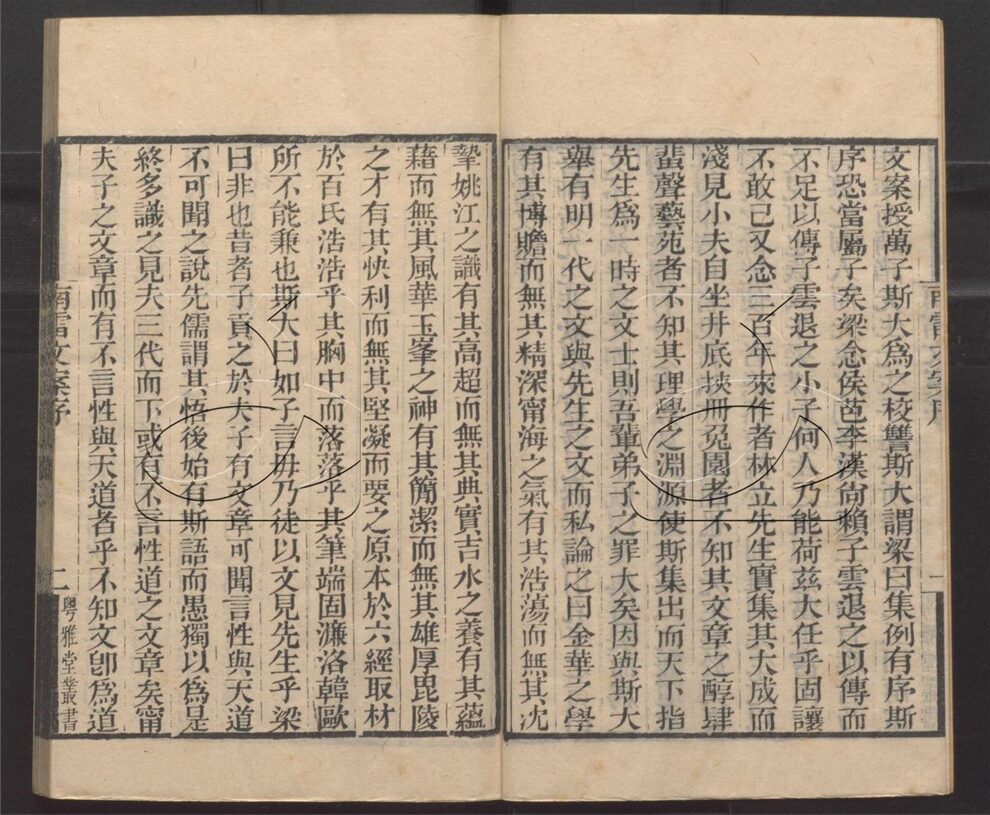 文案授萬子斯大爲之校讐斯大謂梁曰集例有序斯
序恐當屬子矣梁念侯芭李漢尙賴子雲退之以傳而
不足以傳子雲退之小子何人乃能荷茲大任乎固讓
不敢已又念三百年來作者林立先生實集其大成而
淺見小夫自坐井底挾冊兔園者不知其文章之醇肆
蜚聲藝苑者不知其理學之淵源使斯集出而天下指
先生爲一時之文士則吾輩弟子之罪大矣因與斯大
舉有明一代之文與先生之文而私論之曰金華之學
有其博贍而無其精深甯海之氣有其浩蕩而無其沈
摯姚江之識有其高超而無其典實吉水之養有其蘊
藉而無其風華玉峯之神有其簡潔而無其雄厚毘陵
之才有其快利而無其堅凝而要之原本於六經取材
於百氏浩浩乎其胸中而落落乎其筆端固濂洛韓歐
所不能兼也斯大曰如子言毋乃徒以文見先生乎梁
曰非也昔者子貢之於夫子有文章可聞言性與天道
不可聞之說先儒謂其悟後始有斯語而愚獨以爲是
終多識之見夫三代而下或有不言性道之文章矣甯
夫子之文章而有不言性與天道者乎不知文卽爲道
南雷文案序
二
粵雅堂叢書